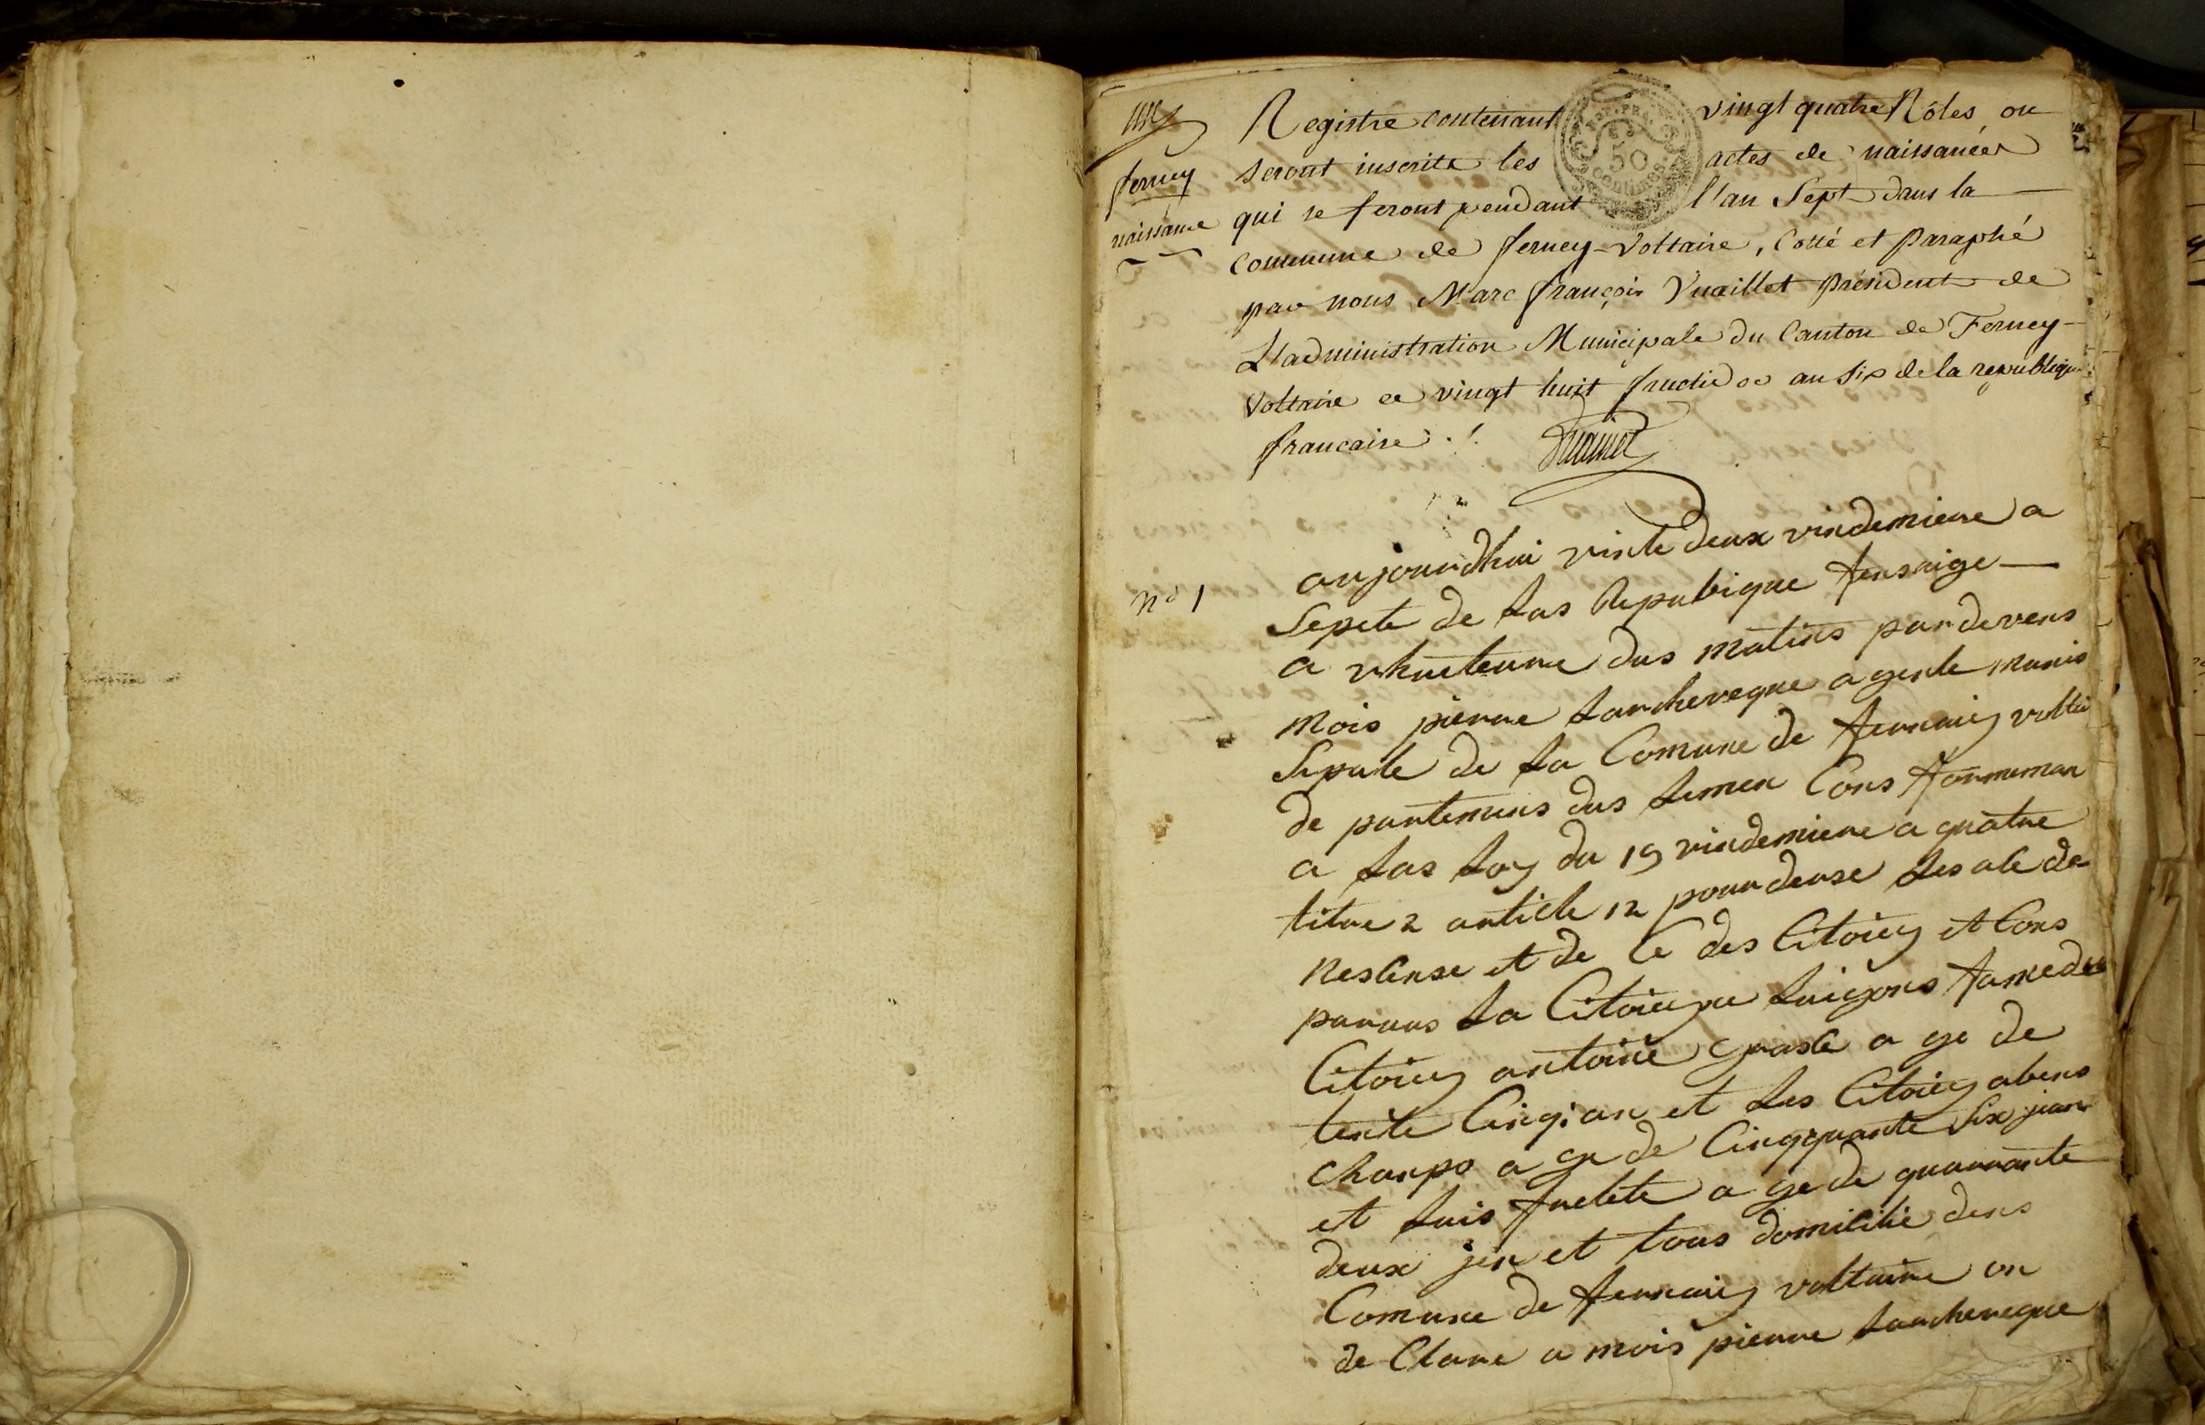 Registre contenant vingt quatre Rôles, ou
seront inscrits les actes de naissances
qui se feront pendant l'an Sept dans la
Commune de ferney-Voltaire, Cotté et Paraphé
par nous Marc françois Vuaillet Président de
L'administration Municipale du Canton de Ferney-
Voltaire ce vingt huit fructidor an Six de la republique
francaise
Vuaillet
ferney
naissance
REP. FRA.
50
centimes
n° 1
aujourdhui vinte deux vindemiere a
Sepete de las Republique
a vhuiteure dus matins pardevens
mois pierre Larcheveque agente munis
Sipale de la Comune de fernaiy voltai
de partemens dus Lemen Cons formeman
a las loy du 19 vindemiere a quatre
titre 2 article 12 pour
et de ce des Citoiey et Cons
parus La Citoieyne
Citoiey antoine a ge de
tente Cinq an et les Citoiey
a ge de Cinqquante Six jean
et Luis a ge de quarrante
deux jen et tous domicilie dens
Comune de fernaiy voltaire on
de Clare a mois pierre Larcheveque